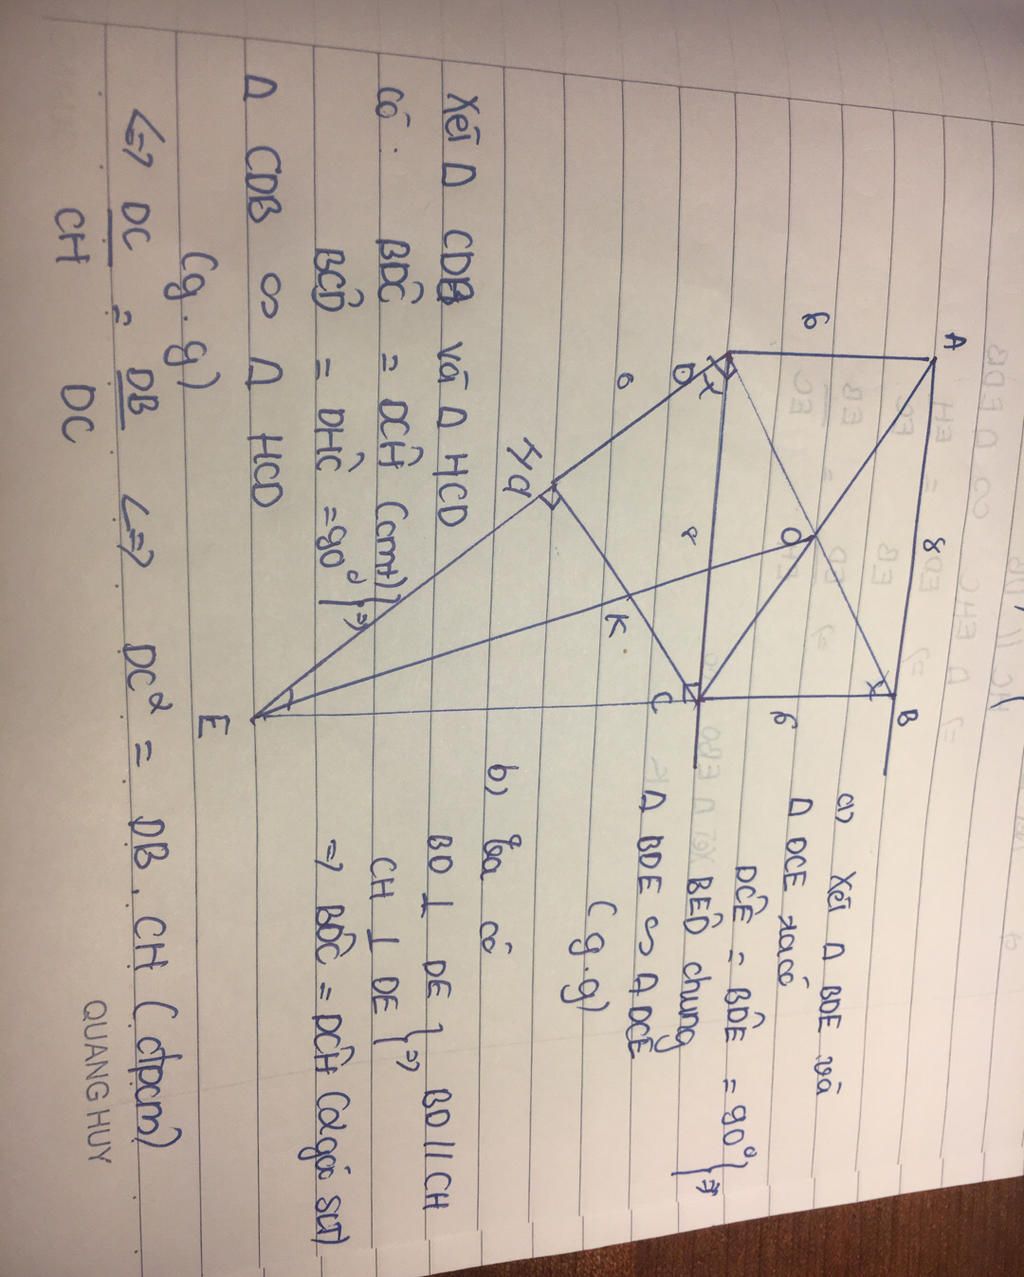 A
8
B
6
O
6
D
8
C
K
H
E
a) Xét Δ BDE và
Δ DCE ta có
DĈE = BD̂E = 90° } =>
BÊD chung
Δ BDE ∽ Δ DCE
(g.g)
b, Ta có
BD ⊥ DE } BD // CH
CH ⊥ DE } =>
=> BD̂C = DĈH (2 góc SLT)
Xét Δ CDB và Δ HCD
có: BD̂C = DĈH (cmt) } =>
BĈD = DĤC = 90°
Δ CDB ∽ Δ HCD
(g.g)
<=> DC/CH = DB/DC <=> DC² = DB.CH (đpcm)
QUANG HUY